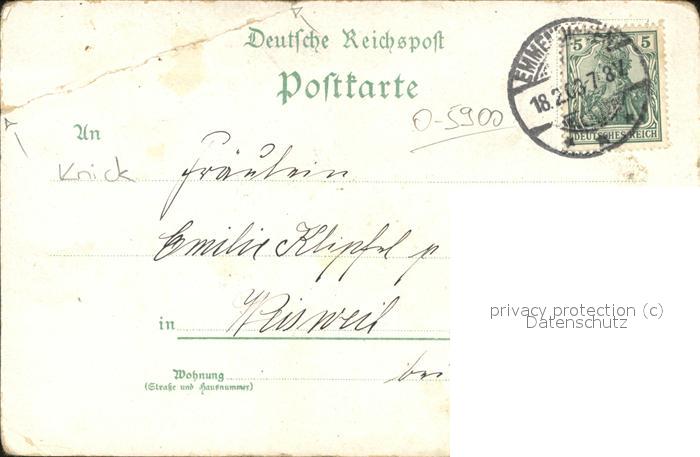 Deutsche Reichspost
Postkarte
5 5
DEUTSCHES REICH
18.2.03.7-8V.
O-5900
An
Knick
Fräulein
Emilie Klipfel
in Weisweil
Wohnung
(Straße und Hausnummer)
bei
privacy protection (c)
Datenschutz